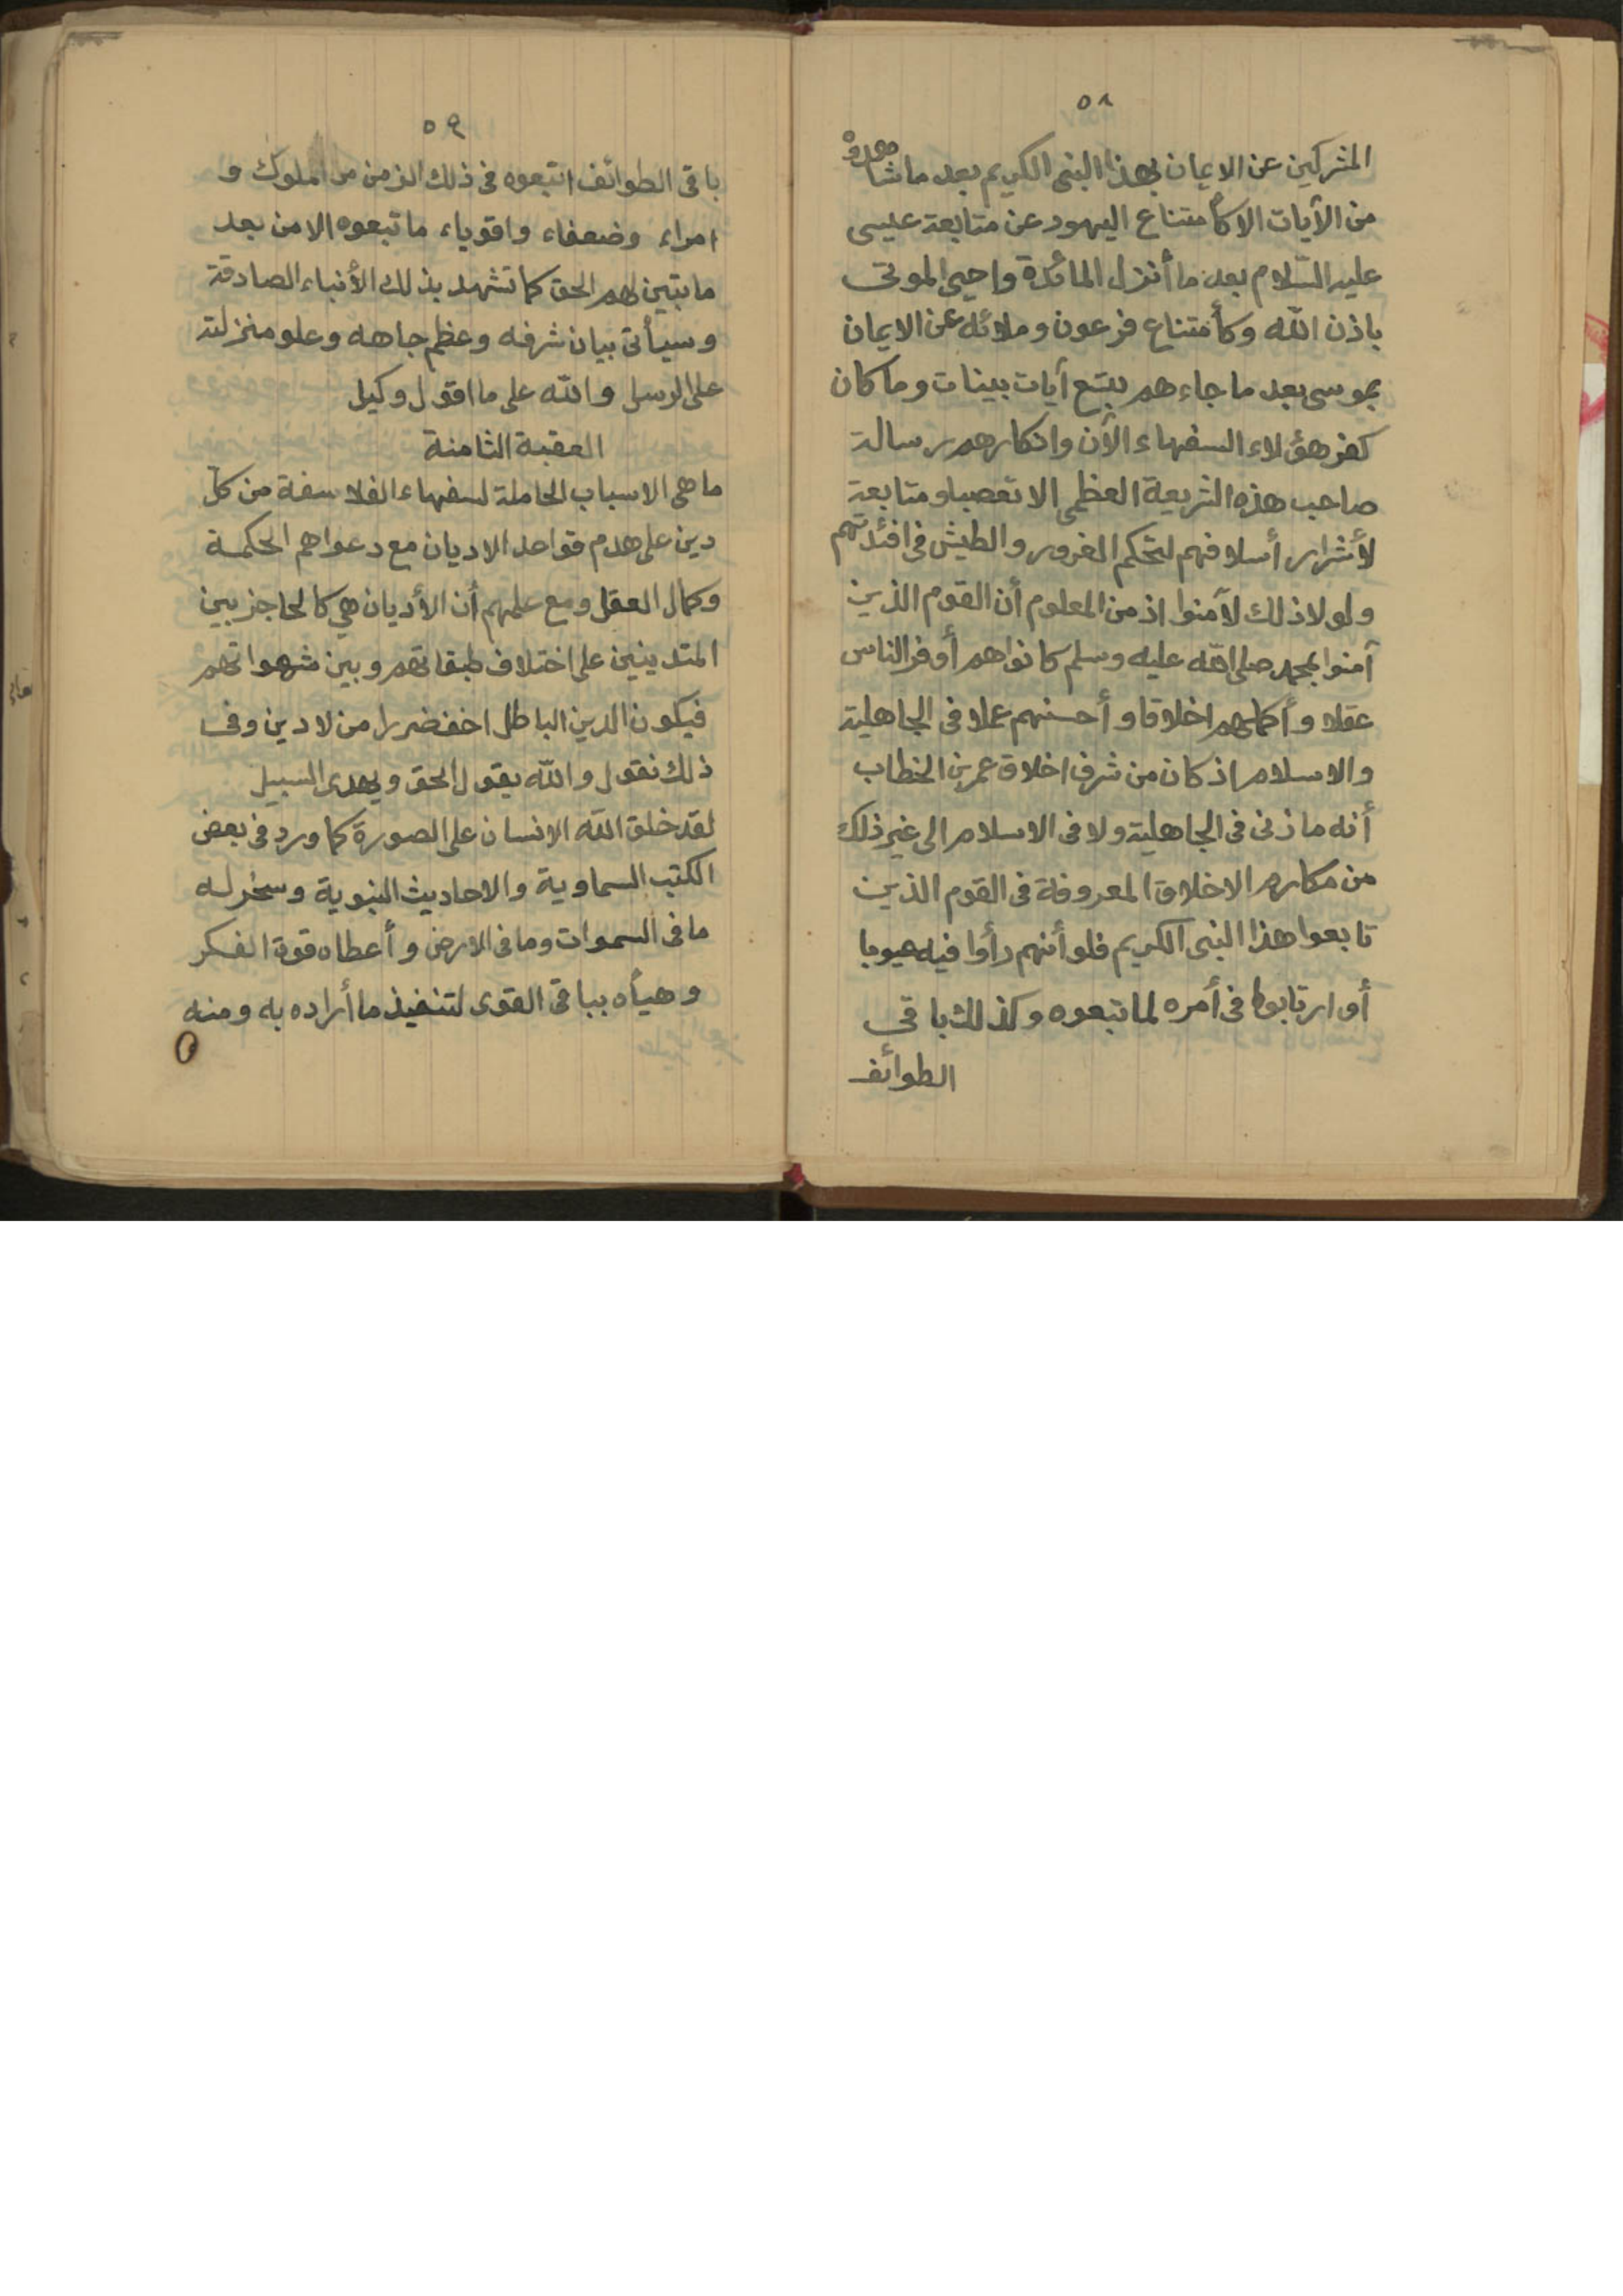 ٥٨
المشركين عن الايمان بهذا النبى الكريم بعد ما شاهدوْ
من الآيات الا كأمتناع اليهود عن متابعة عيسى
عليه السّلام بعد ما أنزل المائدة واحيى الموتى
باذن اللّه وكأمتناع فرعون وملائه عن الايمان
بموسى بعد ما جاءهم بتسع آيات بينات وما كان
كفر هؤلاء السفهاء الآن وانكارهم رسالة
صاحب هذه الشريعة العظمى الا تعصبا ومتابعة
لأشرار أسلافهم لتحكم الغرور والطيش فى افئدتهم
ولولا ذلك لآمنوا اذ من المعلوم أن القوم الذين
آمنوا بمحمد صلى اللّه عليه وسلم كانوا هم أوفر الناس
عقلا وأكملهم اخلاقا وأحسنهم عملا فى الجاهلية
والاسلام اذ كان من شرف اخلاق عمر بن الخطاب
أنه ما زنى فى الجاهلية ولا فى الاسلام الى غير ذلك
من مكارم الاخلاق المعروفة فى القوم الذين
تابعوا هذا النبى الكريم فلو أنهم رأوا فيه عيوبا
أو ارتابوا فى أمره لما تبعوه وكذلك باقى
الطوائف
٥٩
باقى الطوائف اتبعوه فى ذلك الزمن من الملوك و
امراء وضعفاء واقوياء ما تبعوه الا من بعد
ما تبين لهم الحق كما تشهد بذلك الأنباء الصادقة
وسيأتى بيان شرفه وعظم جاهه وعلو منزلته
على الرسل واللّه على ما اقول وكيل
العقبة الثامنة
ما هى الاسباب الحاملة لسفهاء الفلاسفة من كل
دين على هدم قواعد الاديان مع دعواهم الحكمة
وكمال العقل ومع علمهم أن الأديان هي كالحاجز بين
المتدينين على اختلاف طبقاتهم وبين شهواتهم
فيكون الدين الباطل اخف ضررا من لا دين وفى
ذلك نقول واللّه يقول الحق ويهدى السبيل
لقد خلق اللّه الانسان على الصورة كما ورد فى بعض
الكتب السماوية والاحاديث النبوية وسخر له
ما فى السموات وما فى الارض وأعطاه قوة الفكر
وهيأه بباقى القوى لتنفيذ ما أراده به ومنه